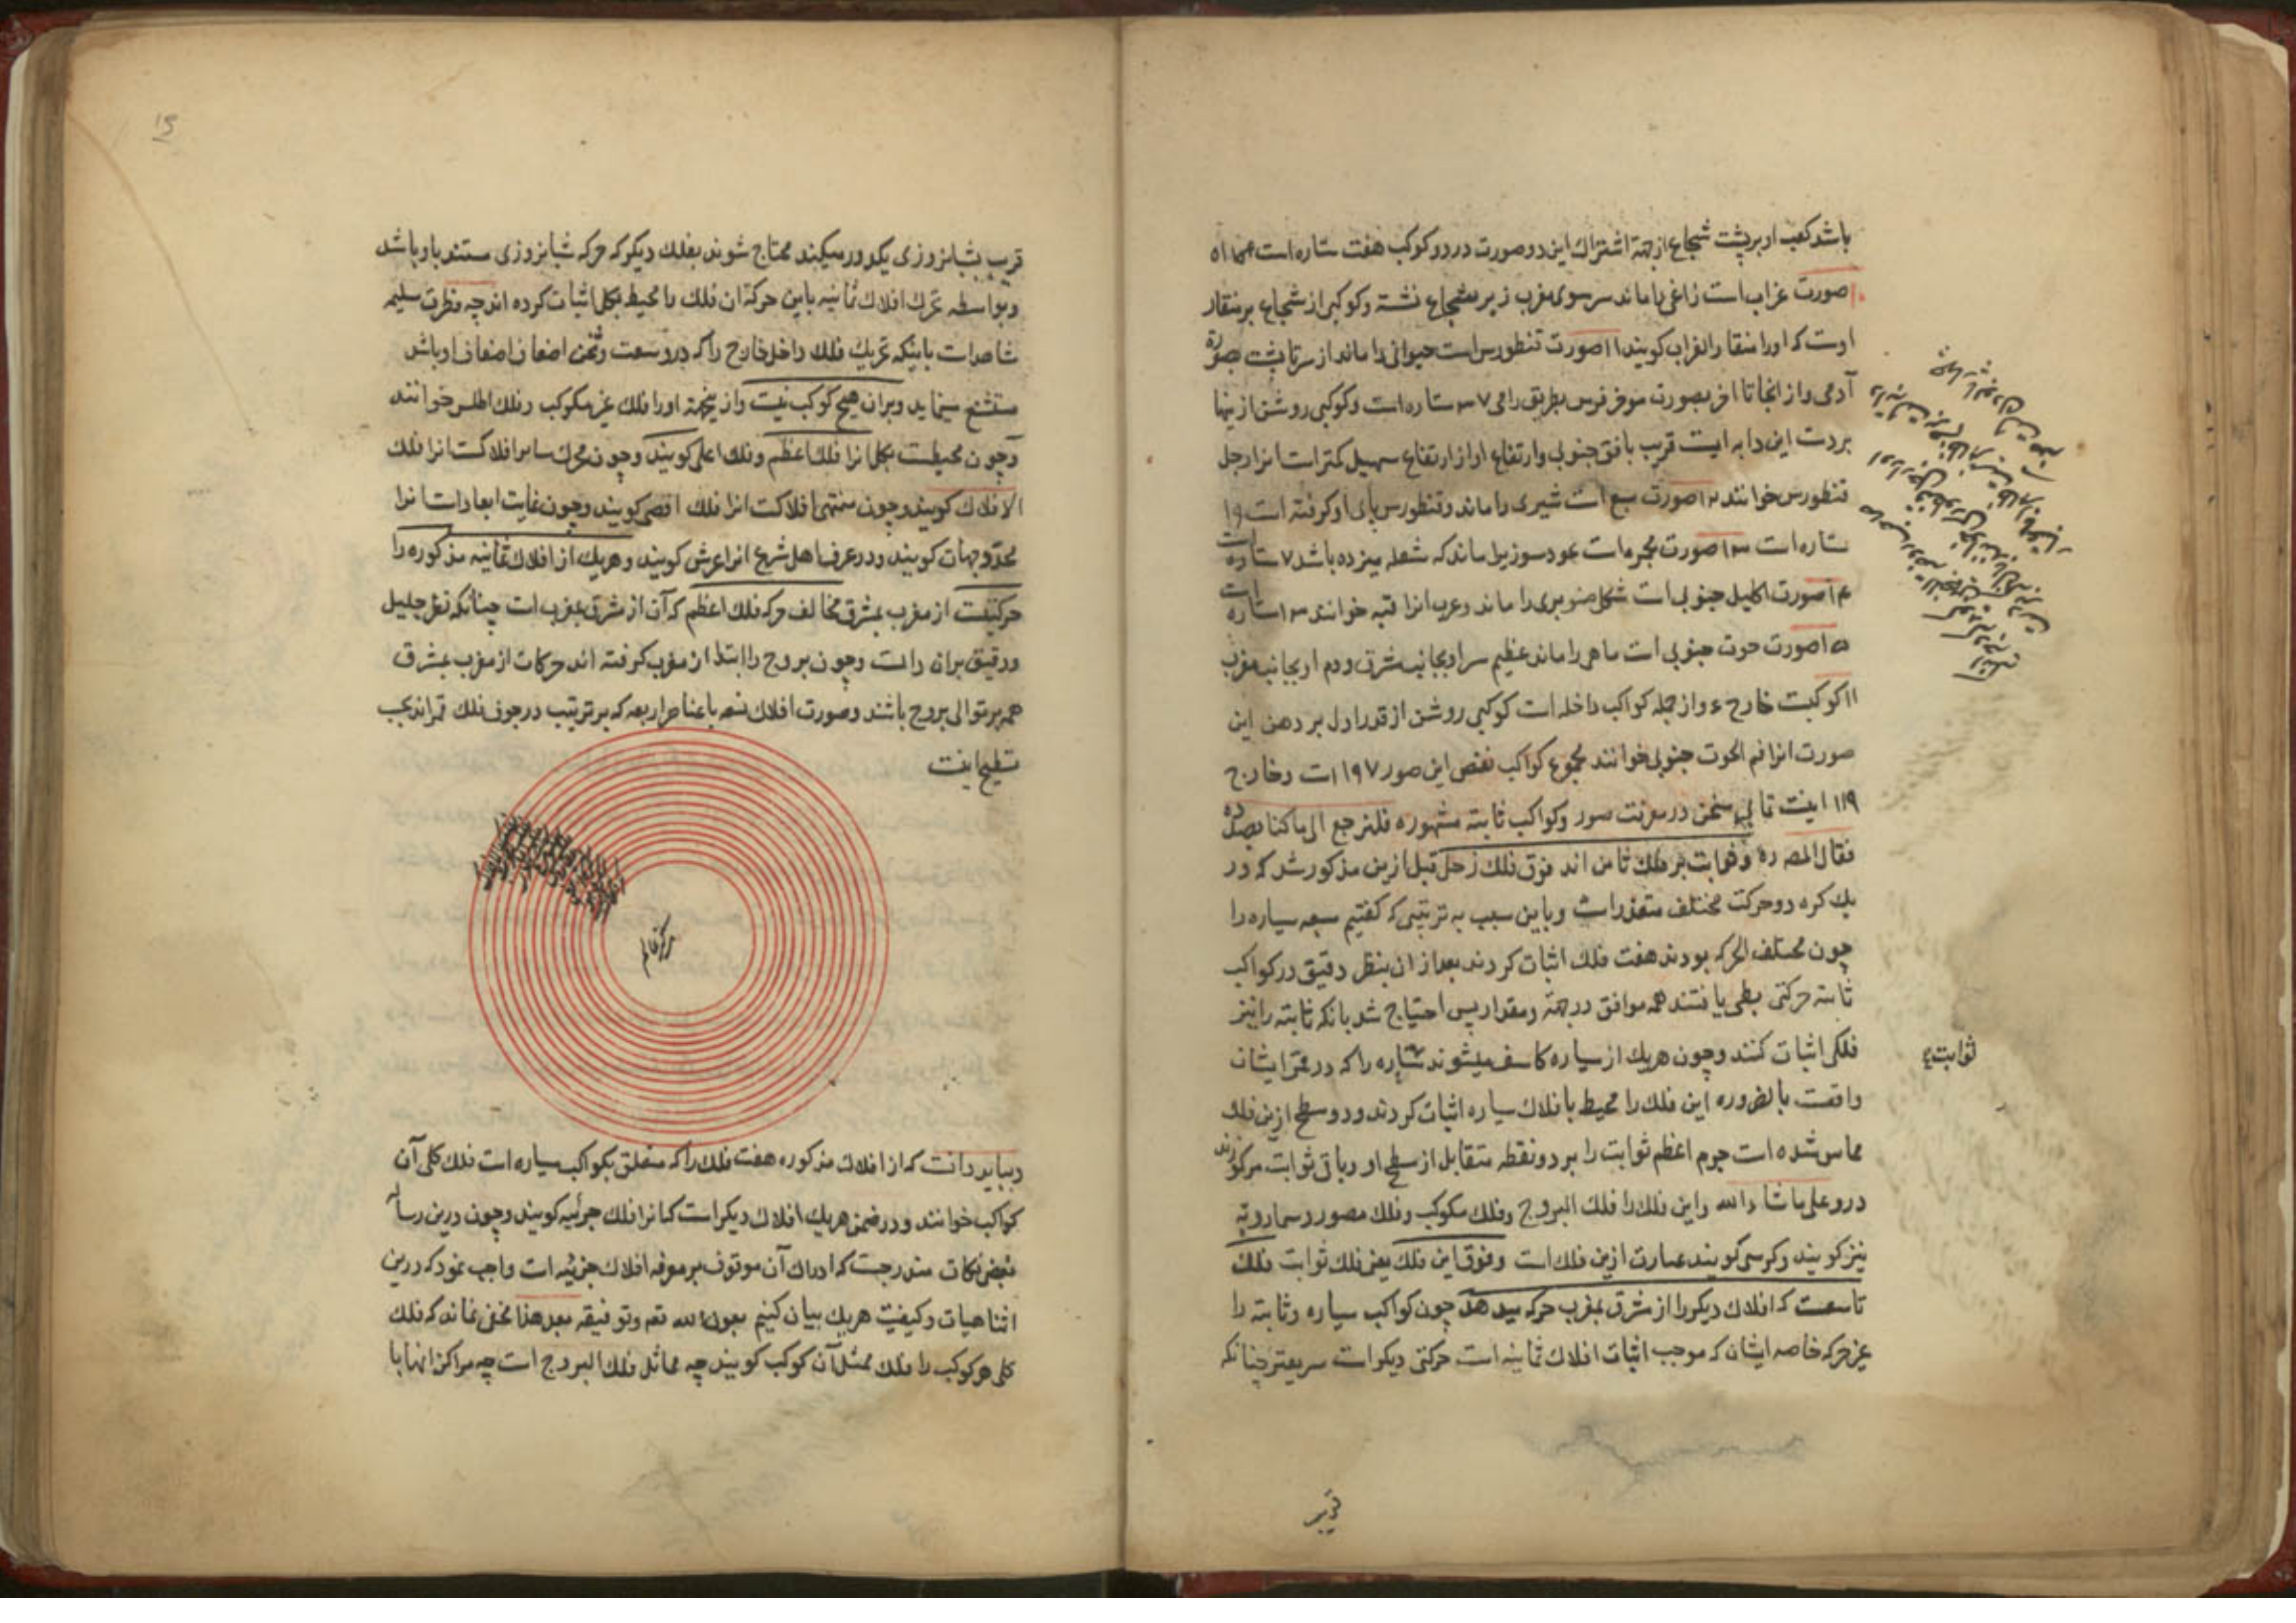 باشد کعب او بر پشت شجاع از جهة اشتراک این دو صورت در دو کوکب هفت ستاره است
صورت غراب است زاغی را ماند سر سوی مغرب زبر شجاع نشسته و کوکبی از شجاع بر منقار
اوست که اورا منقار الغراب کویند ۱۱ صورت قنطورس است حیوانی را ماند از سر تا پشت بصورة
آدمی و از انجا تا اخر بصورت موخر فرس بطریق رامی ۳۷ ستاره است و کوکبی روشن ازینها
بر دست این دابه است قریب بافق جنوبی و ارتفاع او از ارتفاع سهیل کمتر است انرا رجل
قنطورس خوانند ۱۲ صورت سبع است شیری را ماند و قنطورس پای او کرفته است ۱۹
ستاره است ۱۳ صورت مجمره است عود سوزیرا ماند که شعله میزده باشد ۷ ستاره است
۱۴ صورت اکلیل جنوبی است شکل صنوبری را ماند و عرب انرا قبه خوانند ۱۳ ستاره است
۱۵ صورت حوت جنوبی است ماهی را ماند عظیم سر او بجانب مشرق و دم او بجانب مغرب
۱۱ کوکبست خارج ء و از جمله کواکب داخله است کوکبی روشن از قدر اول بر دهن این
صورت انرا فم الحوت جنوبی خوانند مجموع کواکب نفس این صور ۲۹۷ است و خارج
۱۱۹ اینست تمامی سخن در معرفت صور و کواکب ثابته مشهوره فلنرجع الی ما کنا بصدده
فقال المصـ ره و ثوابت بر فلک ثامن اند فوق فلک زحل قبل ازین مذکور شد که در
یک کره دو حرکت مختلف متعذر است و باین سبب به ترتیبی که کفتیم سبعه سیاره را
چون مختلف الحرکه بودند هفت فلک اثبات کردند بعد از ان بنظر دقیق در کواکب
ثابته حرکتی بطی یافتند همه موافق در جهة و مقدار پس احتیاج شد بانکه ثابته را نیز
فلکی اثبات کنند و چون هریک از سیاره کاسف میشوند ستاره را که در ممر ایشان
ثوابت
واقعست بالضروره این فلک را محیط بافلاک سیاره اثبات کردند و دو سطح ازین فلک
مماس شده است جرم اعظم ثوابت را بر دو نقطه متقابل از سطح او و باقی ثوابت مرکوزند
درو علی ما شاء الله و این فلک را فلک البروج و فلک مکوکب و فلک مصور و سماء رویة
نیز کویند و کرسی کویند عبارت ازین فلک است و فوق این فلک یعنی فلک ثوابت فلک
تاسعست که افلاک دیکر را از مشرق بمغرب حرکه میدهد چون کواکب سیاره و ثابته را
غیر حرکه خاصه ایشان که موجب اثبات افلاک ثمانیه است حرکتی دیکر است سریعتر چنانکه
قریب
۱۵
قریب بشبانروزی یکدور میکنند محتاج شوند بفلک دیکر که حرکه شبانروزی مستند باو باشد
و بواسطه تحرک افلاک ثمانیه باین حرکة ان فلک را محیط بکل اثبات کرده اند چه فطرت سلیم
شاهد است باینکه تحریک فلک داخل خارج را که در وسعت و ثخن اضعاف اضعاف او باشد
مستشنع مینماید و بران هیچ کوکب نیست و ازینجهة اورا فلک غیر مکوکب و فلک اطلس خوانند
و چون محیطست بکل انرا فلک اعظم و فلک اعلی کویند و چون محرک سایر افلاکست انرا فلک
الافلاک کویند و چون منتهی افلاکست انرا فلک اقصی کویند و چون غایت ابعاد است انرا
محدد جهات کویند و در عرف اهل شرع انرا عرش کویند و هریک از افلاک ثمانیه مذکوره را
حرکتیست از مغرب بمشرق مخالف حرکه فلک اعظم که آن از مشرق بمغرب است چنانکه نظر جلیل
و دقیق بران دالست و چون بروج را ابتدا از مغرب کرفته اند حرکات از مغرب بمشرق
همه بر توالی بروج باشند و صورت افلاک تسعه با عناصر اربعه که بر ترتیب در جوف فلک قمر اند بحسب
تسطیح اینست
مرکز عالم
و بباید دانست که از افلاک مذکوره هفت فلک را که متعلق بکواکب سیاره است فلک کلی آن
کواکب خوانند و در ضمن هریک افلاک دیکر است که انرا فلک جزئیه کویند و چون درین رساله
بعض نکات مندرجست که ادراک آن موقوف بر معرفه افلاک جزئیه است واجب نمود که درین
اثنا هیات و کیفیت هریک بیان کنیم بعون الله تعـ و توفیقه بعد هذا مخفی نماند که فلک
کلی هر کوکب را فلک ممثل آن کوکب کویند چه مماثل فلک البروج است چه مراکز انها با